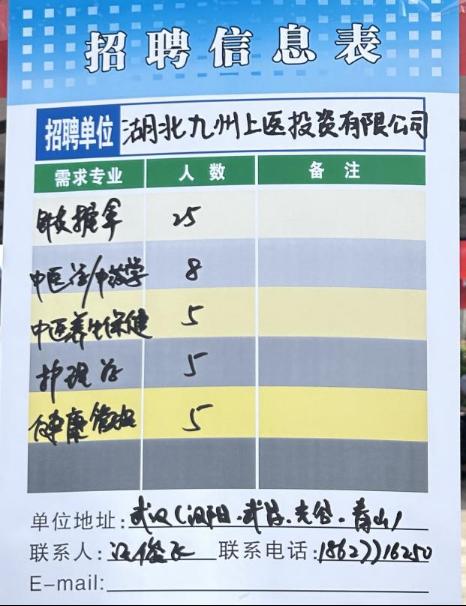 招聘信息表
招聘单位 湖北九州上医投资有限公司
需求专业 人数 备注
针灸推拿 25
中医学/中药学 8
中医养生保健 5
护理学 5
健康管理 5
单位地址:武汉(汉阳.武昌.光谷.青山)
联系人:汪俊飞 联系电话:18627716250
E-mail: